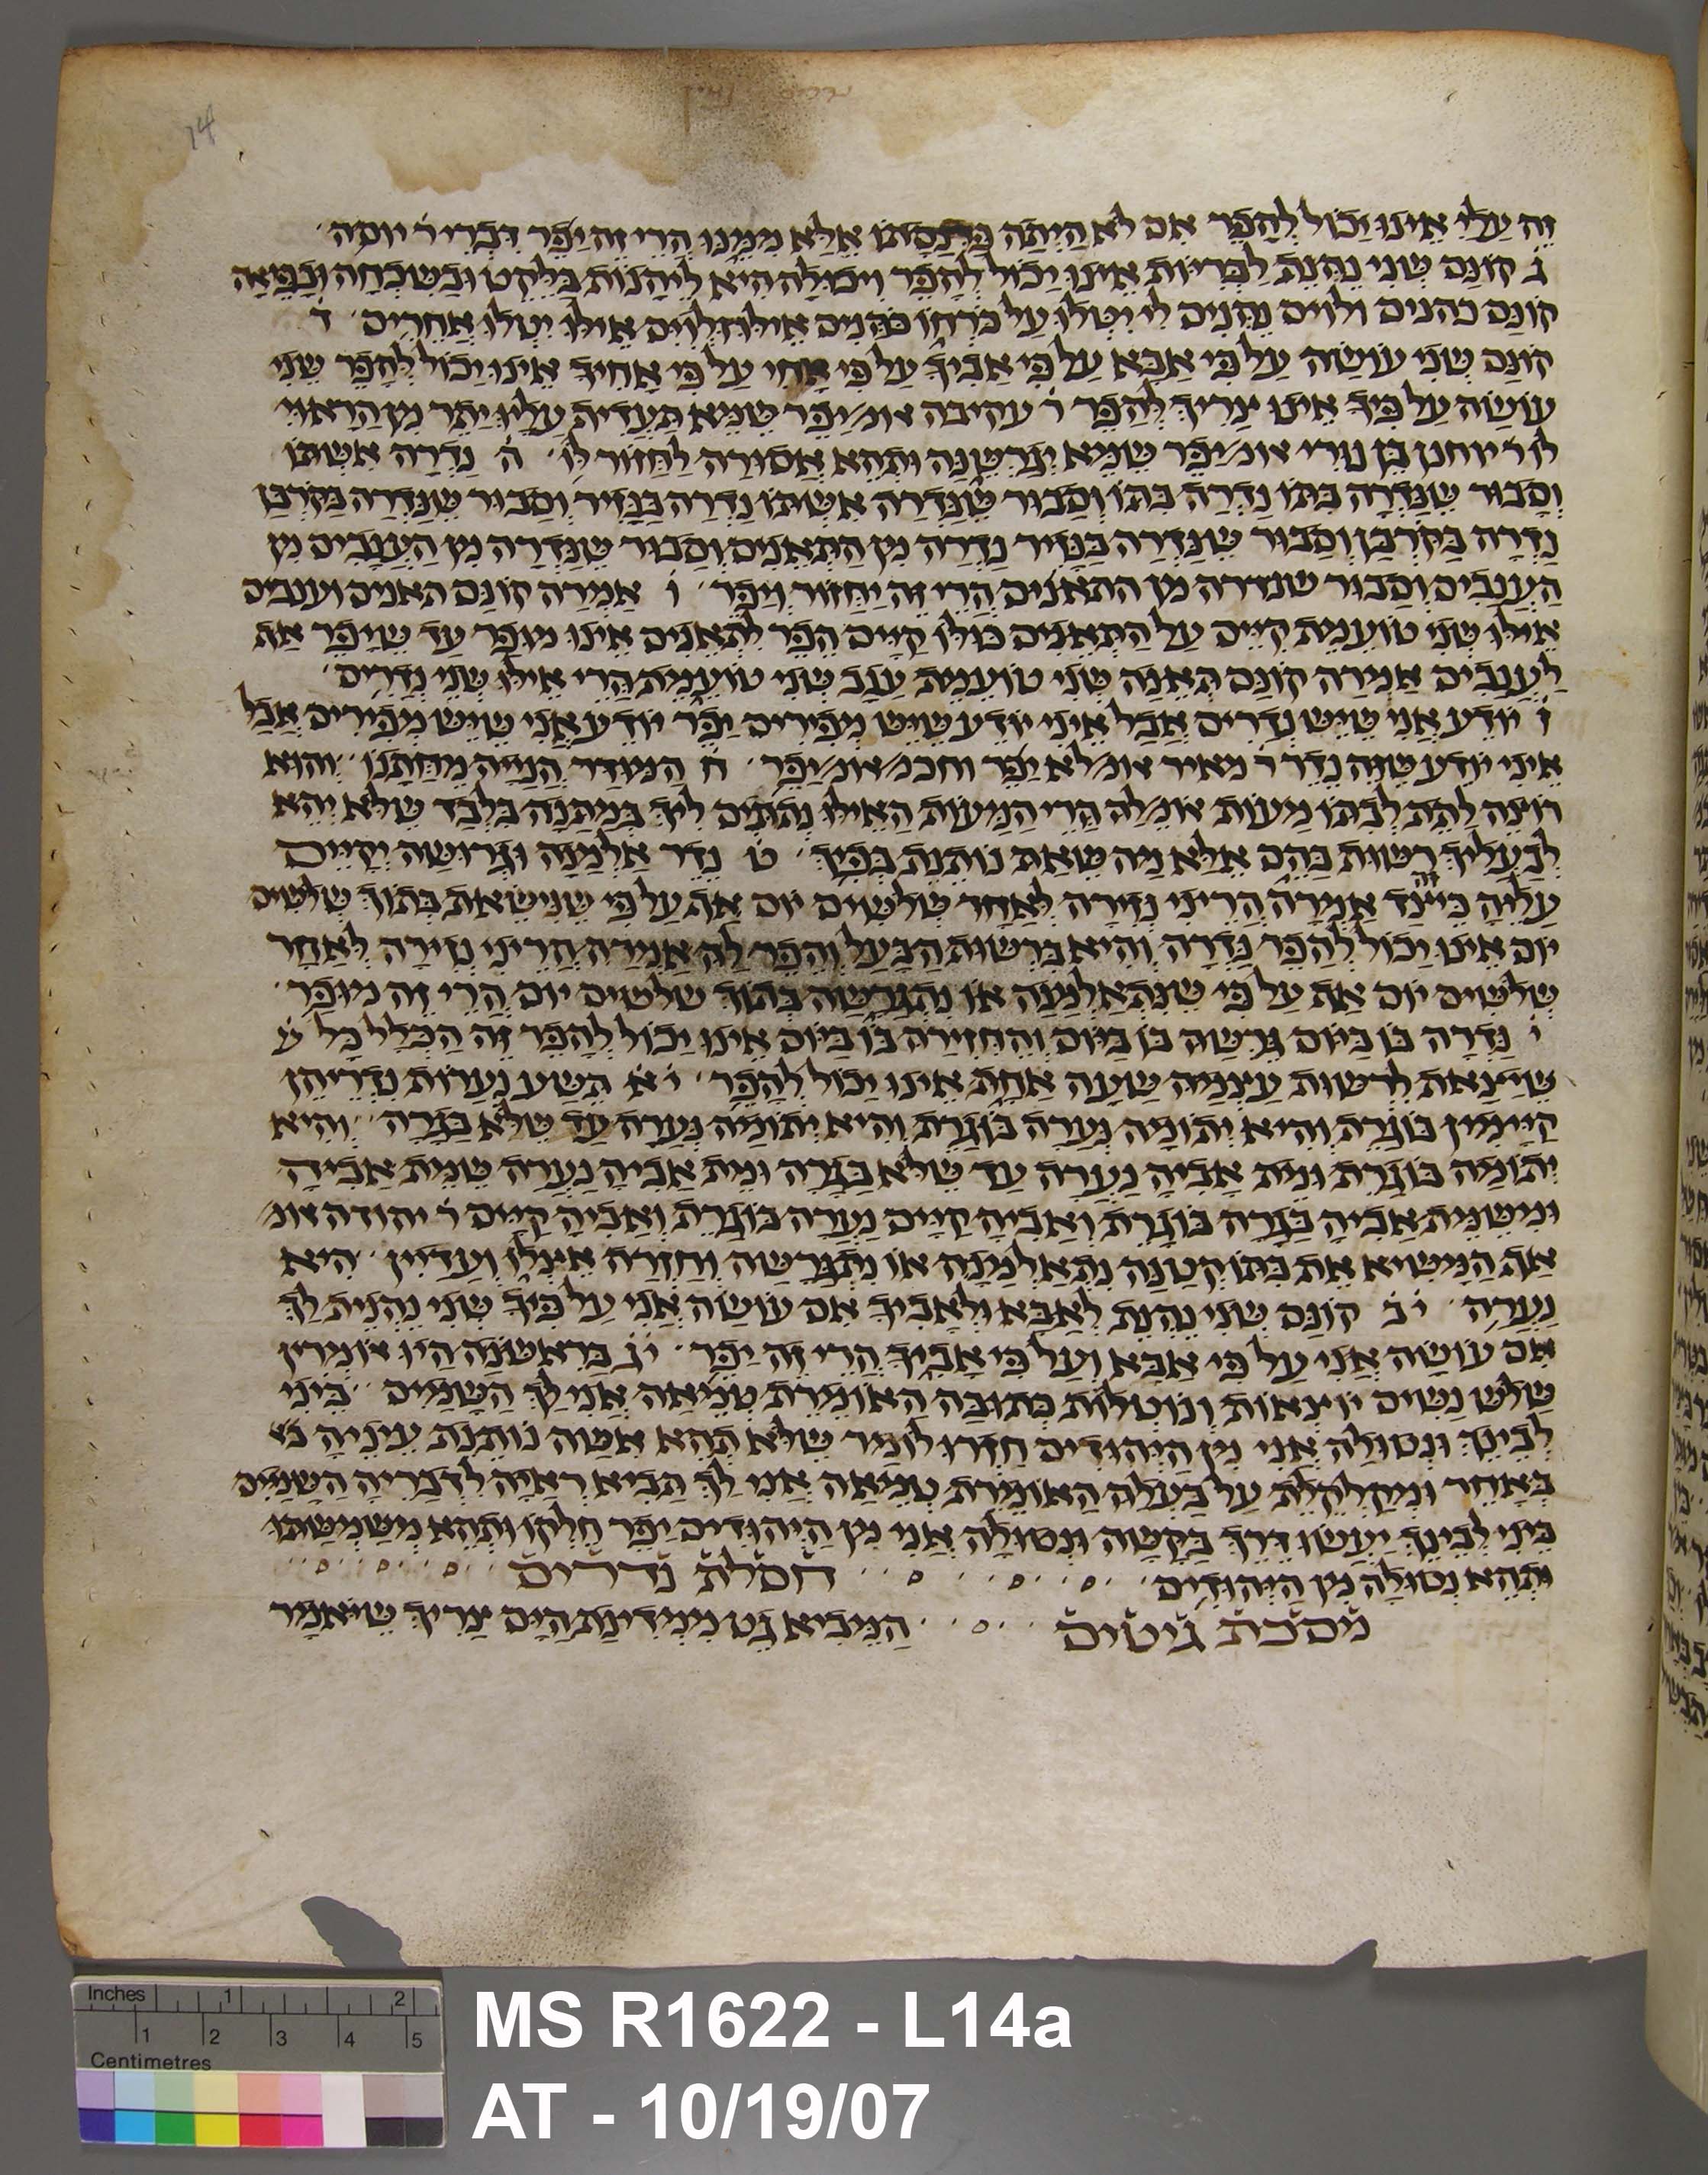 14
זה עלי אינו יכול להפר אם לא היתה פרנסתו אלא ממנו הרי זה יפר דברי ר׳ יוסה
ג קונם שני נהנת לבריות אינו יכול להפר ויכולה היא ליהנות בלקט ובשכחה ובפאה
קונם כהנים ולוים נהנים לי יטלו על כורחו כהנים אילו ולוים אילו יטלו אחרים ד
קונם שני עושה על פי אבא על פי אביך על פי אחי על פי אחיך אינו יכול להפר שני
עושה על פיך אינו צריך להפר ר׳ עקיבה אומ׳ יפר שמא תעדיף עליו יתר מן הראוי
לו ר׳ יוחנן בן נורי אומ׳ יפר שמא יגרשנה ותהא אסורה לחזור לו ה נדרה אשתו
וסבור שנדרה בתו נדרה בתו וסבור שנדרה אשתו נדרה בנזיר וסבור שנדרה בקרבן
נדרה בקרבן וסבור שנדרה בנזיר נדרה מן התאנים וסבור שנדרה מן הענבים מן
הענבים וסבור שנדרה מן התאנים הרי זה יחזור ויפר ו אמרה קונם תאנים וענבים
אילו שני טועמת קיים על התאנים כולו קיים הפר לתאנים אינו מופר עד שיפר את
לענבים אמרה קונם תאנה שני טועמת ענב שני טועמת הרי אילו שני נדרים
ז יודע אני שיש נדרים אבל איני יודע שיש מפירים יפר יודע אני שיש מפירים אבל
איני יודע שזה נדר ר׳ מאיר אומ׳ לא יפר וחכמ׳ אומ׳ יפר ח המודר הנייה מחתנו והוא
רוצה לתת לבתו מעות אומ׳ לה הרי המעות האילו נתונים ליך במתנה בלבד שלא יהא
לבעליך רשות בהם אלא מה שאת נותנת בפיך ט נדר אלמנה וגרושה יקיים
עליה כיצד אמרה הריני נזירה לאחר שלשים יום אף על פי שנישאת בתוך שלשים
יום אינו יכול להפר נדרה והיא ברשות הבעל והפר לה אמרה הריני נזירה לאחר
שלשים יום אף על פי שנתאלמנה או נתגרשה בתוך שלשים יום הרי זה מופר
י נדרה בו ביום גרשה בו ביום והחזירה בו ביום אינו יכול להפר זה הכלל כל ש
שיצאת לרשות עצמה שעה אחת אינו יכול להפר יא תשע נערות נדריהן
קיימין בוגרת והיא יתומה נערה בוגרת והיא יתומה נערה עד שלא בגרה והיא
יתומה בוגרת ומת אביה נערה עד שלא בגרה ומת אביה נערה שמת אביה
ומשמת אביה בגרה בוגרת ואביה קיים נערה בוגרת ואביה קיים ר׳ יהודה אומ׳
אף המשיא את בתו קטנה נתאלמנה או נתגרשה וחזרה אצלו ועדיין היא
נערה יב קונם שני נהנת לאבא ולאביך אם עושה אני על פיך שני נהנית לך
אם עושה אני על פי אבא ועל פי אביך הרי זה יפר יג בראשונה היו אומרין
שלש נשים יוצאות ונוטלות כתובה האומרת טמאה אני לך השמים ביני
לבינך ונטולה אני מן היהודים חזרו לומר שלא תהא אשה נותנת עיניה
באחר ומקלקלת על בעלה האומרת טמאה אני לך תביא ראיה לדבריה השמים
ביני לבינך יעשו דרך בקשה ונטולה אני מן היהודים יפר חלקו ותהא משמשתו
ותהא נטולה מן היהודים חסלת נדרים
מסכת גיטים המביא גט ממדינת הים צריך שיאמר
Inches 1 2
1 2 3 4 5
Centimetres
MS R1622 - L14a
AT - 10/19/07